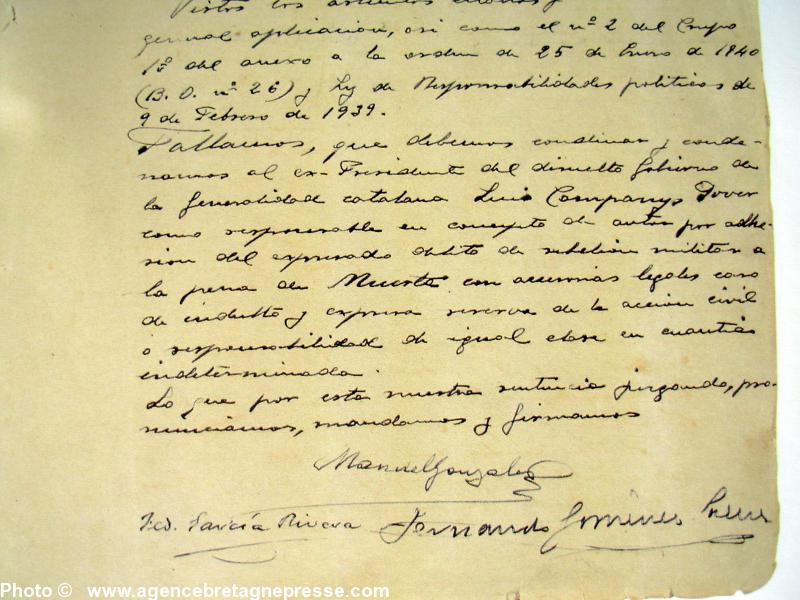 Vistos los artículos citados y
general aplicación, asi como el nº 2 del Grupo
1º del anexo a la orden de 25 de Enero de 1940
(B. O. nº 26) y Ley de Responsabilidades politicas de
9 de Febrero de 1939.
Fallamos, que debemos condenar y conde-
namos al ex-Presidente del disuelto Gobierno de
la Generalidad catalana Luis Companys Jover
como responsable en concepto de autor por adhe-
sion del expresado delito de rebelión militar a
la pena de Muerte con accesorias legales caso
de indulto y expresa reserva de la acción civil
o responsabilidad de igual clase en cuantia
indeterminada.
Lo que por esta nuestra sentencia juzgando, pro-
nunciamos, mandamos y firmamos
Manuel Gonzalez
Fed. García Rivera Fernando Giménez
Photo © www.agencebretagnepresse.com